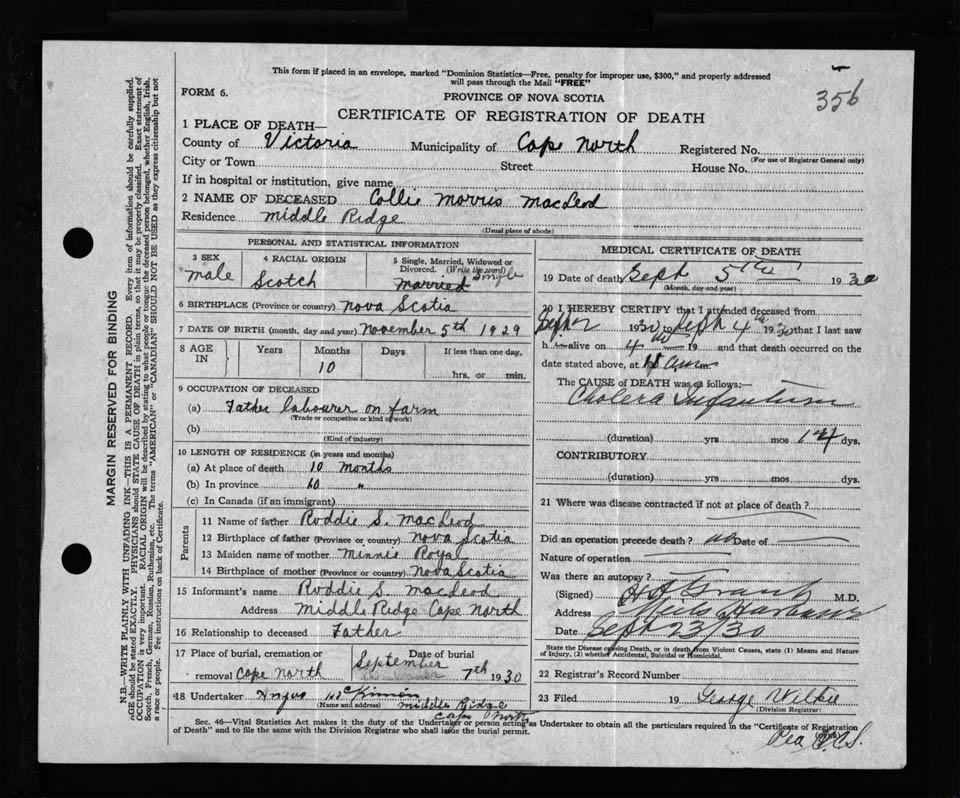 This form if placed in an envelope, marked "Dominion Statistics—Free, penalty for improper use, $300," and properly addressed
will pass through the Mail "FREE"
356
FORM 6.
PROVINCE OF NOVA SCOTIA
CERTIFICATE OF REGISTRATION OF DEATH
1 PLACE OF DEATH—
County of Victoria Municipality of Cape North Registered No.
(For use of Registrar General only)
City or Town Street House No.
If in hospital or institution, give name
2 NAME OF DECEASED Collie Morris MacLeod
Residence Middle Ridge
(Usual place of abode)
PERSONAL AND STATISTICAL INFORMATION
3 SEX 4 RACIAL ORIGIN 5 Single, Married, Widowed or
Divorced. (Write the word) Single
male Scotch Married
6 BIRTHPLACE (Province or country) Nova Scotia
7 DATE OF BIRTH (month, day and year) November 5th 1929
8 AGE IN Years Months Days If less than one day,
10 hrs. or min.
9 OCCUPATION OF DECEASED
(a) Father labourer on farm
(Trade or occupation or kind of work)
(b)
(Kind of industry)
10 LENGTH OF RESIDENCE (in years and months)
(a) At place of death 10 months
(b) In province 10 "
(c) In Canada (if an immigrant)
Parents
11 Name of father Roddie S. MacLeod
12 Birthplace of father (Province or country) Nova Scotia
13 Maiden name of mother Minnie Royal
14 Birthplace of mother (Province or country) Nova Scotia
15 Informant's name Roddie S. MacLeod
Address Middle Ridge Cape North
16 Relationship to deceased Father
17 Place of burial, cremation or Date of burial
removal Cape North September 7th 1930
18 Undertaker Angus McKinnon
(Name and address) Middle Ridge
Cape North
MEDICAL CERTIFICATE OF DEATH
19 Date of death Sept 5th 1930
(Month, day and year)
20 I HEREBY CERTIFY that I attended deceased from
1930 to Sept 4th 1930 that I last saw
h alive on 4th 19 and that death occurred on the
date stated above, at m.
The CAUSE of DEATH was as follows:—
Cholera Infantum
(duration) yrs mos 14 dys.
CONTRIBUTORY
(duration) yrs mos dys.
21 Where was disease contracted if not at place of death?
Did an operation precede death? no Date of
Nature of operation
Was there an autopsy?
(Signed) Grant M.D.
Address Neils Harbour
Date Sept 23/30
State the Disease causing Death, or in death from Violent Causes, state (1) Means and Nature
of Injury, (2) whether Accidental, Suicidal or Homicidal.
22 Registrar's Record Number
23 Filed 19 George Wilkie
(Division Registrar)
Sec. 46—Vital Statistics Act makes it the duty of the Undertaker or person acting as Undertaker to obtain all the particulars required in the "Certificate of Registration
of Death" and to file the same with the Division Registrar who shall issue the burial permit.
MARGIN RESERVED FOR BINDING
N.B.—WRITE PLAINLY WITH UNFADING INK—THIS IS A PERMANENT RECORD. Every item of information should be carefully supplied.
AGE should be stated EXACTLY. PHYSICIANS should STATE CAUSE OF DEATH in plain terms, so that it may be properly classified. Exact statement of
OCCUPATION is very important. RACIAL ORIGIN will be described by stating to what people or tongue the deceased person belonged, whether English, Irish,
Scotch, French, German, Russian, Ruthenian, etc. The terms "AMERICAN" or "CANADIAN" SHOULD NOT BE USED as they express citizenship but not
a race or people. See instructions on back of Certificate.